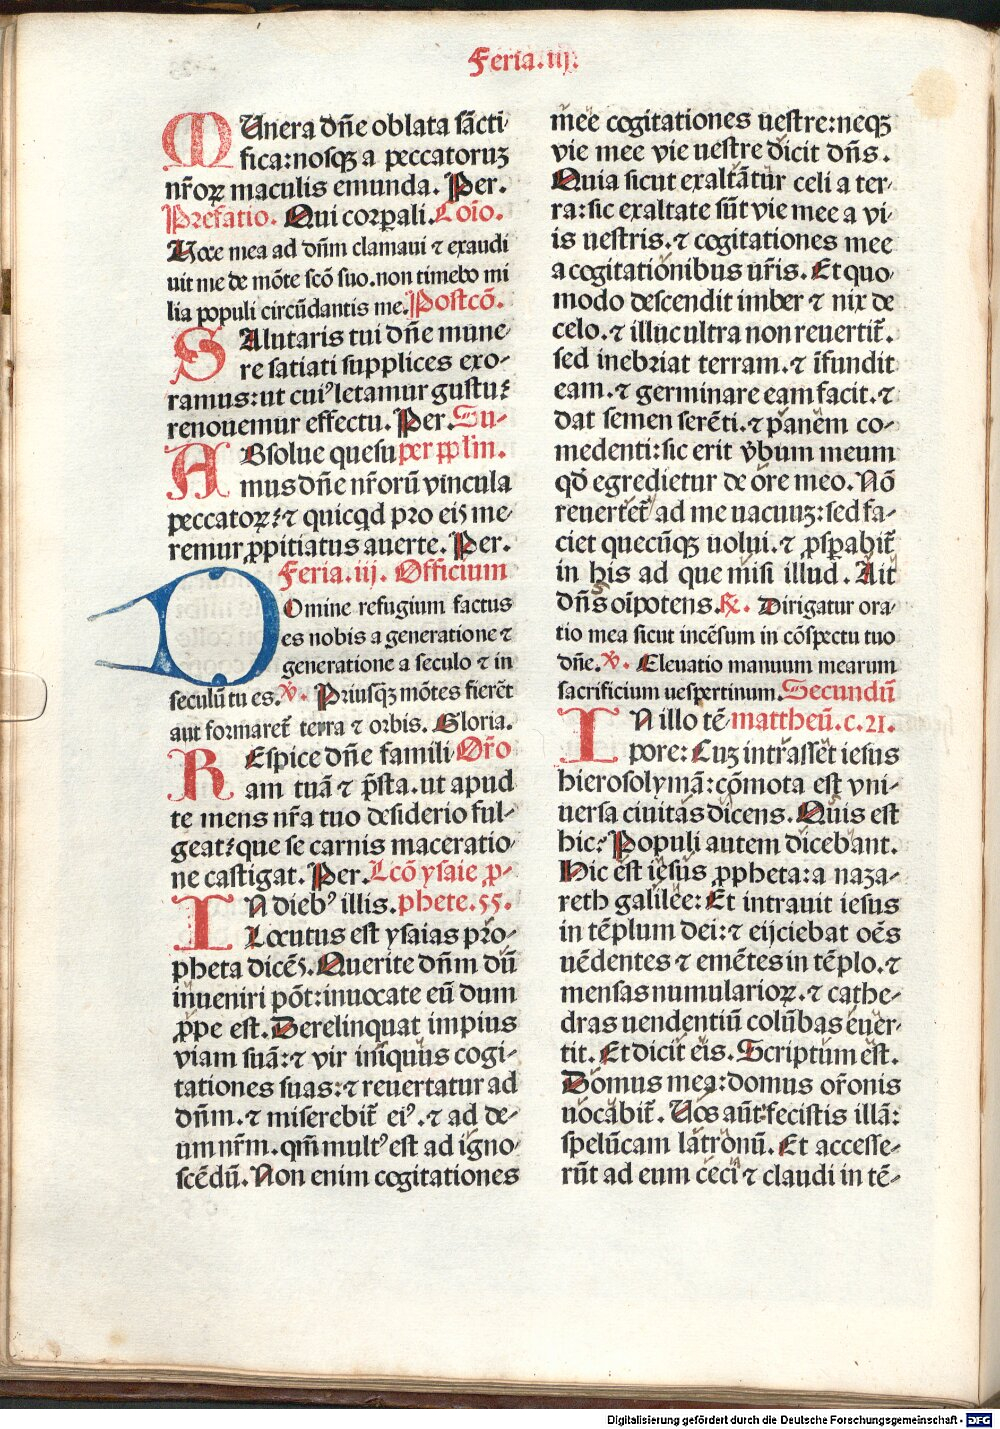 Feria.iij.
MUnera dn̄e oblata sācti-
fica:nosqꝫ a peccatoruꝫ
nr̄oꝝ maculis emunda. Per.
Prefatio. Qui corꝑali. Cōio.
Uoce mea ad dn̄m clamaui ⁊ exaudi
uit me de mōte scō suo.non timebo mi
lia populi circūdantis me. Postcō.
SAlutaris tui dn̄e mune-
re satiati supplices exo-
ramus:ut cuiꝰ letamur gustu:
renouemur effectu. Per. Su-
ABsolue quesu per pplm̄.
mus dn̄e nr̄orū vincula
peccatoꝝ:⁊ quicqd pro eis me-
remur ꝓpitiatus auerte. Per.
Feria.iij. Officium
DOmine refugium factus
es nobis a generatione ⁊
generatione a seculo ⁊ in
seculū tu es. ℣. Priusqꝫ mōtes fierēt
aut formaret̄ terra ⁊ orbis. Gloria.
REspice dn̄e famili Or̄o
am tuā ⁊ p̄sta.ut apud
te mens nr̄a tuo desiderio ful-
geat:que se carnis maceratio-
ne castigat. Per. Lcō ysaie ꝓ-
IN diebꝰ illis. phete.55.
Locutus est ysaias pro-
pheta dicēs. Querite dn̄m dū
inueniri pōt:inuocate eū dum
ꝓpe est. Derelinquat impius
viam suā:⁊ vir iniquus cogi-
tationes suas:⁊ reuertatur ad
dn̄m.⁊ miserebit̄ eiꝰ.⁊ ad de-
um nr̄m.qm̄ multꝰ est ad igno-
scēdū. Non enim cogitationes
mee cogitationes uestre:neqꝫ
vie mee vie uestre dicit dn̄s.
Quia sicut exaltātur celi a ter-
ra:sic exaltate sūt vie mee a vi-
is uestris.⁊ cogitationes mee
a cogitationibus ur̄is. Et quo-
modo descendit imber ⁊ nix de
celo.⁊ illuc ultra non reuertit̄.
sed inebriat terram.⁊ īfundit
eam.⁊ germinare eam facit.⁊
dat semen serēti.⁊ panem co-
medenti:sic erit v̄bum meum
qd̄ egredietur de ore meo. Nō
reuertet̄ ad me uacuuꝫ:sed fa-
ciet quecūqꝫ uolui.⁊ ꝓsꝑabit̄
in his ad que misi illud. Ait
dn̄s oīpotens. ℟. Dirigatur ora-
tio mea sicut incēsum in cōspectu tuo
dn̄e. ℣. Eleuatio manuum mearum
sacrificium uespertinum. Secundū
IN illo tē mattheū.c.21.
pore: Cuꝫ intrasset iesus
hierosolymā:cōmota est vni-
uersa ciuitas dicens. Quis est
hic? Populi autem dicebant.
Hic est iesus ꝓpheta:a naza-
reth galilee: Et intrauit iesus
in tēplum dei:⁊ eijciebat oēs
uēdentes ⁊ emētes in tēplo.⁊
mensas numularioꝝ.⁊ cathe-
dras uendentiū colūbas euer-
tit. Et dicit eis. Scriptum est.
Domus mea:domus or̄onis
uocabit̄. Uos aūt:fecistis illā:
spelūcam latronū. Et accesse-
rūt ad eum ceci ⁊ claudi in tē-
Digitalisierung gefördert durch die Deutsche Forschungsgemeinschaft - DFG